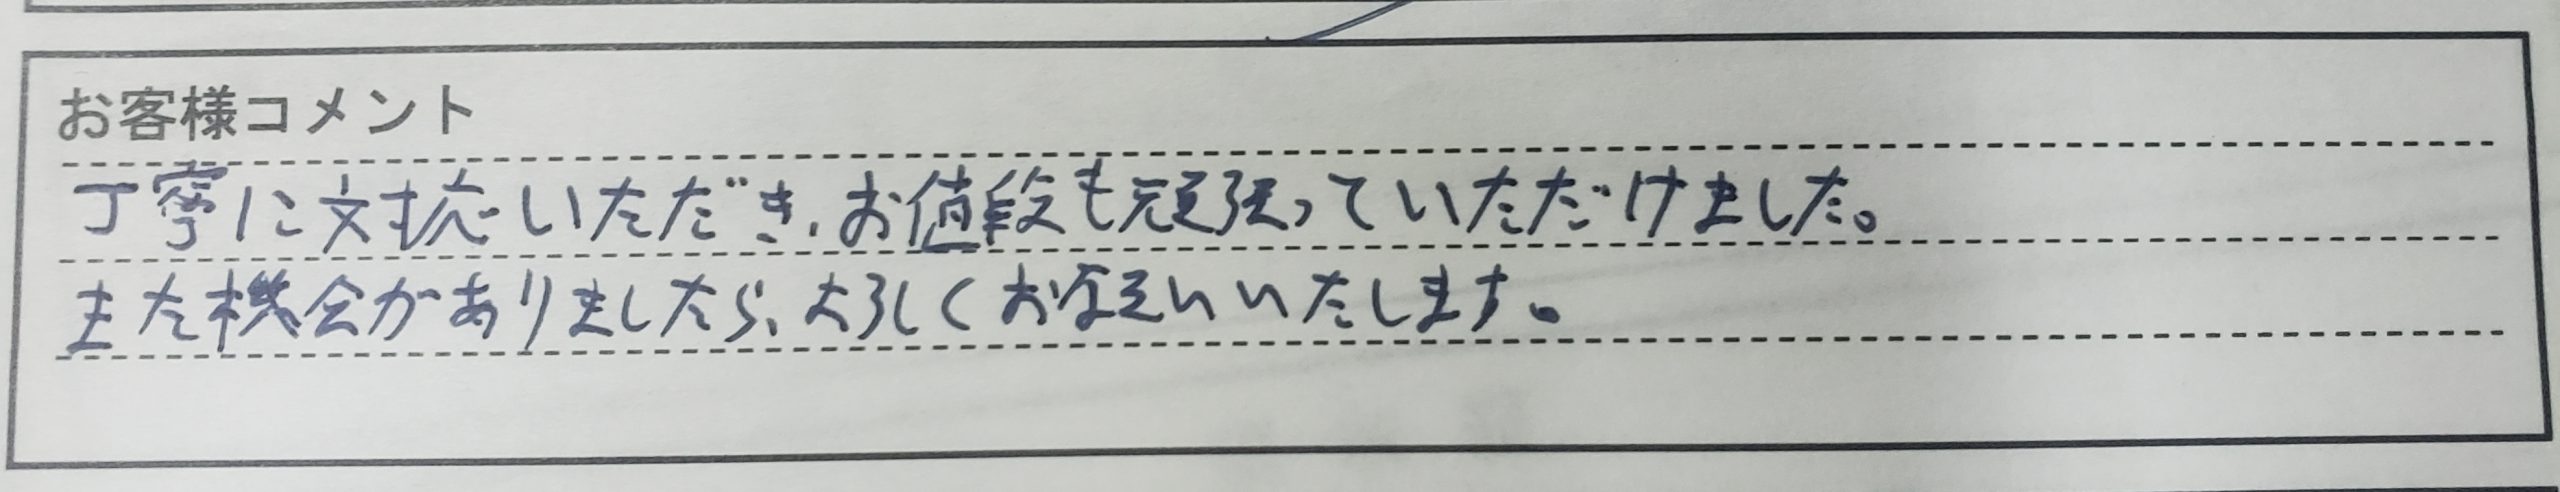 お客様コメント
丁寧に対応いただき、お値段も頑張っていただけました。
また機会がありましたら、よろしくお願いいたします。